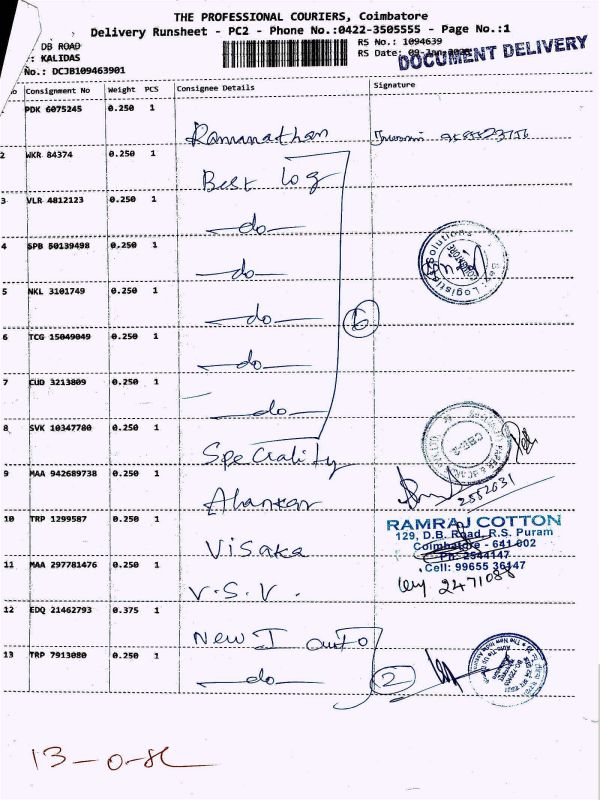 THE PROFESSIONAL COURIERS, Coimbatore
Delivery Runsheet - PC2 - Phone No.:0422-3505555 - Page No.:1
DB ROAD
: KALIDAS
No.: DCJB109463901
RS No.: 1094639
RS Date: 09-Jan-
DOCUMENT DELIVERY
Consignment No Weight PCS Consignee Details Signature
PDK 6075245 0.250 1
Ramanathan
2 WKR 84374 0.250 1
Best log
3 VLR 4812123 0.250 1
—do—
4 SPB 50139498 0.250 1
—do—
5 NKL 3101749 0.250 1
—do—
6 TCG 15049049 0.250 1
—do—
7 CUD 3213809 0.250 1
—do—
6
8 SVK 10347780 0.250 1
Speciality
9 MAA 942689738 0.250 1
Alankar
2552631
10 TRP 1299587 0.250 1
Visaka
RAMRAJ COTTON
129, D.B. Road, R.S. Puram
Coimbatore - 641 002
Ph: 2544147
Cell: 99655 36147
11 MAA 297781476 0.250 1
V.S.V.
12 EDQ 21462793 0.375 1
New I auto
13 TRP 7913080 0.250 1
—do—
2
13-0-